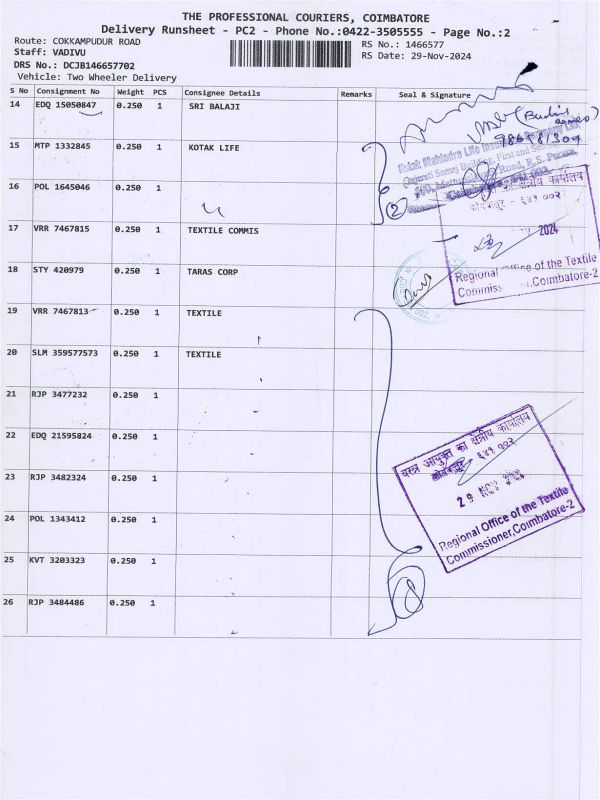 THE PROFESSIONAL COURIERS, COIMBATORE
Delivery Runsheet - PC2 - Phone No.:0422-3505555 - Page No.:2
Route: COKKAMPUDUR ROAD
RS No.: 1466577
Staff: VADIVU
RS Date: 29-Nov-2024
DRS No.: DCJB146657702
Vehicle: Two Wheeler Delivery
S No Consignment No Weight PCS Consignee Details Remarks Seal & Signature
14 EDQ 15050847 0.250 1 SRI BALAJI
15 MTP 1332845 0.250 1 KOTAK LIFE
Kotak Mahindra Life
16 POL 1645046 0.250 1
2
क्षेत्रीय कार्यालय
६४१ ००२
17 VRR 7467815 0.250 1 TEXTILE COMMIS
2024
Regional Office of the Textile
Commiss Coimbatore-2
18 STY 420979 0.250 1 TARAS CORP
19 VRR 7467813 0.250 1 TEXTILE
20 SLM 359577573 0.250 1 TEXTILE
21 RJP 3477232 0.250 1
22 EDQ 21595824 0.250 1
वस्त्र आयुक्त का क्षेत्रीय कार्यालय
कोयम्बतूर ६४१ ००२
23 RJP 3482324 0.250 1
29 NOV
24 POL 1343412 0.250 1
Regional Office of the Textile
Commissioner, Coimbatore-2
25 KVT 3203323 0.250 1
26 RJP 3484486 0.250 1